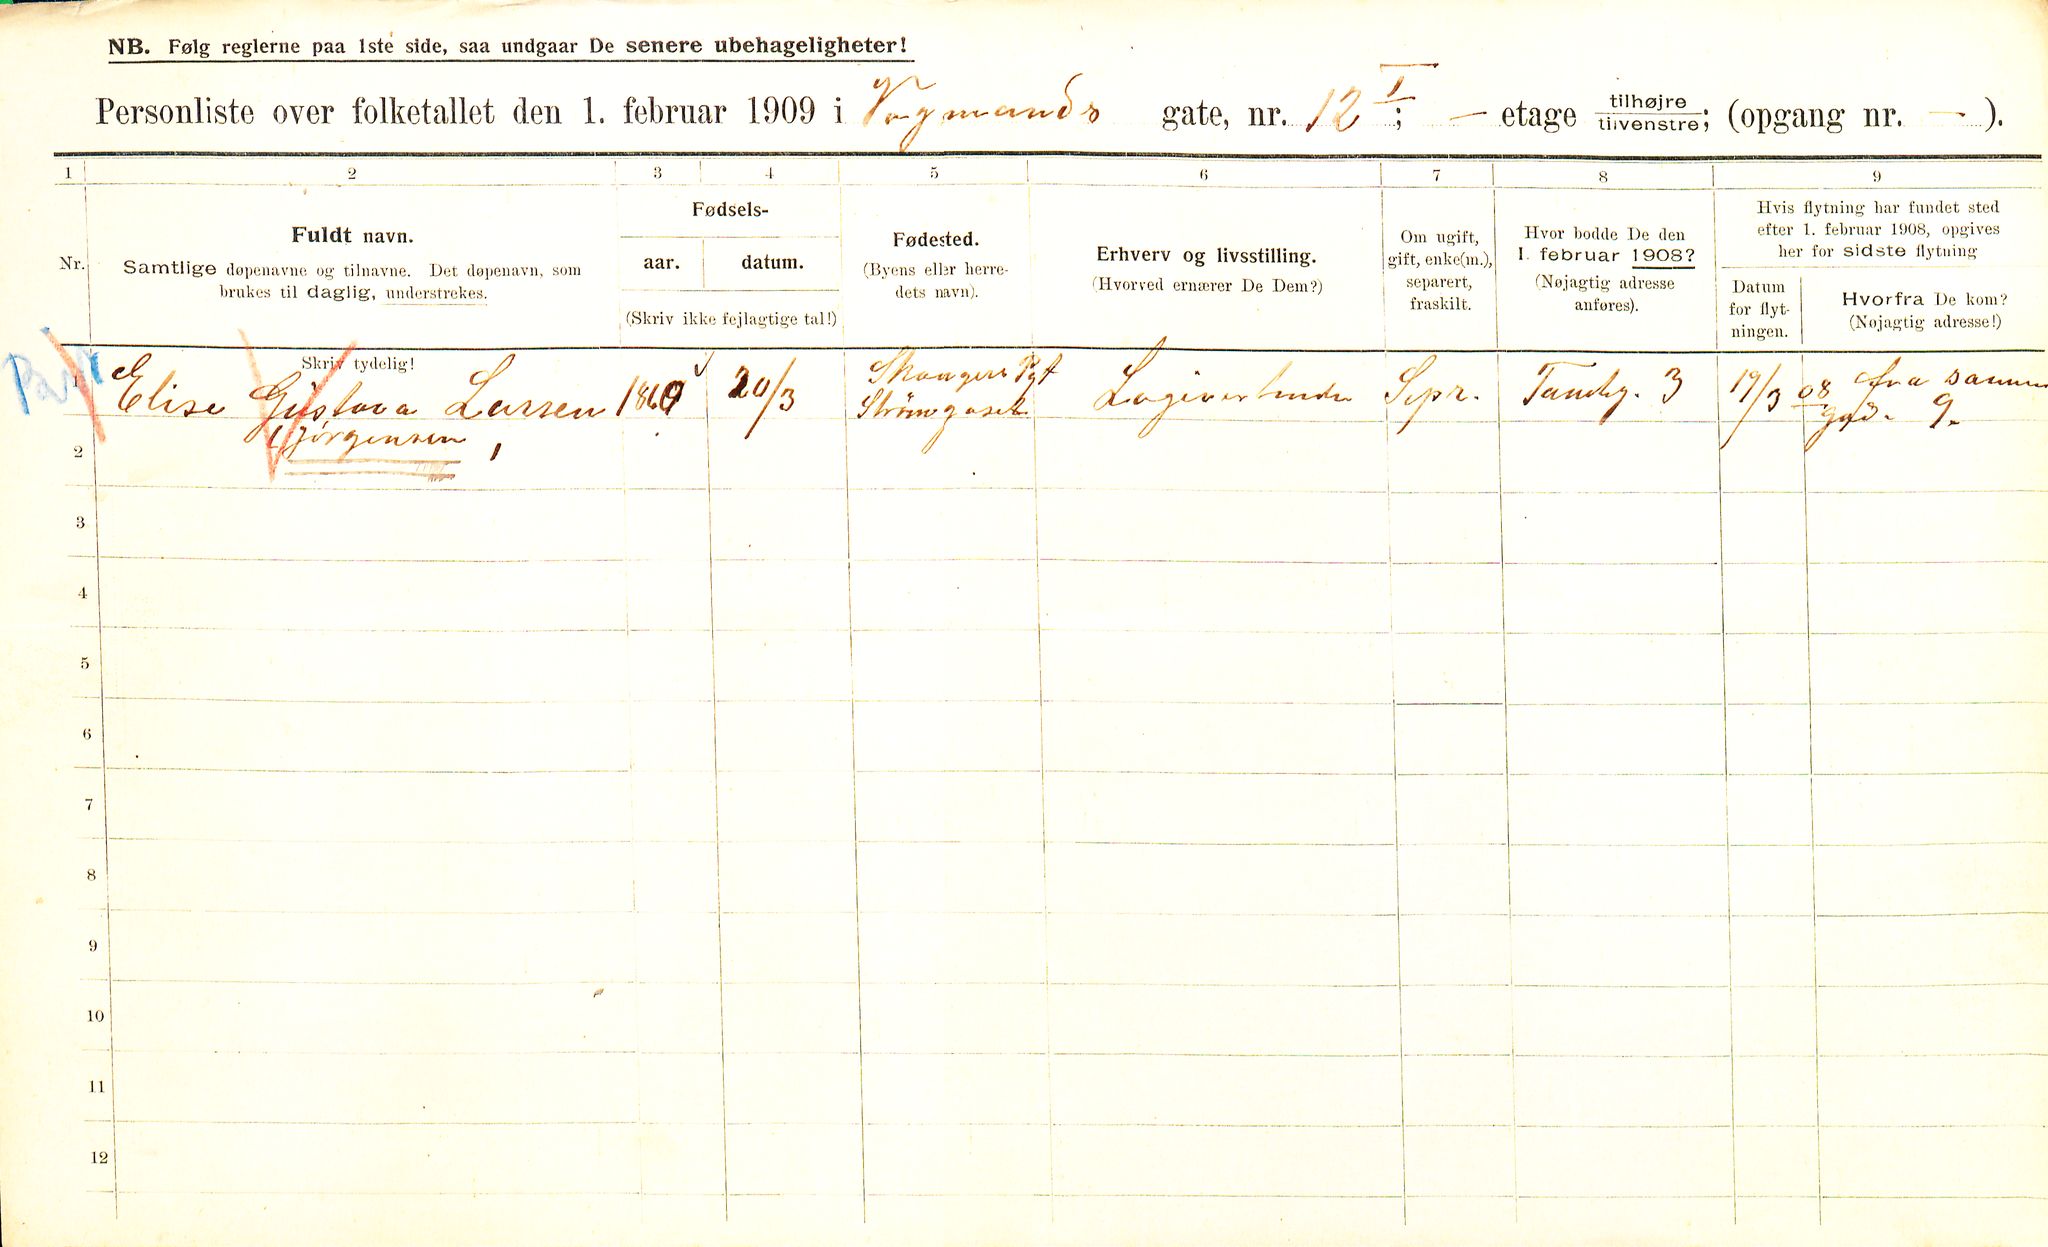 NB. Følg reglerne paa 1ste side, saa undgaar De senere ubehageligheter!
Personliste over folketallet den 1. februar 1909 i Vognmands gate, nr. 12 I/1; — etage tilhøjre/tilvenstre; (opgang nr. — ).
1 2 3 4 5 6 7 8 9
Nr.
Fuldt navn.
Samtlige døpenavne og tilnavne. Det døpenavn, som
brukes til daglig, understrekes.
Fødsels-
aar. datum.
(Skriv ikke fejlagtige tal!)
Fødested.
(Byens eller herre-
dets navn).
Erhverv og livsstilling.
(Hvorved ernærer De Dem?)
Om ugift,
gift, enke(m.),
separert,
fraskilt.
Hvor bodde De den
1. februar 1908?
(Nøjagtig adresse
anføres).
Hvis flytning har fundet sted
efter 1. februar 1908, opgives
her for sidste flytning
Datum
for flyt-
ningen.
Hvorfra De kom?
(Nøjagtig adresse!)
Skriv tydelig!
1 Elise Gustava Larsen 1860 20/3 Skoger Pgt Logivertinde Sepr. Tomteg. 3 19/3 08 fra samme
Strømgodset gad. 9.
2 Jørgensen
3
4
5
6
7
8
9
10
11
12